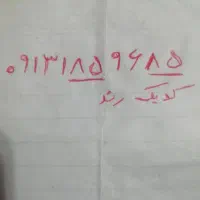 ۰۹۱۳۱۸۵۹۶۸۵
کدیک رند